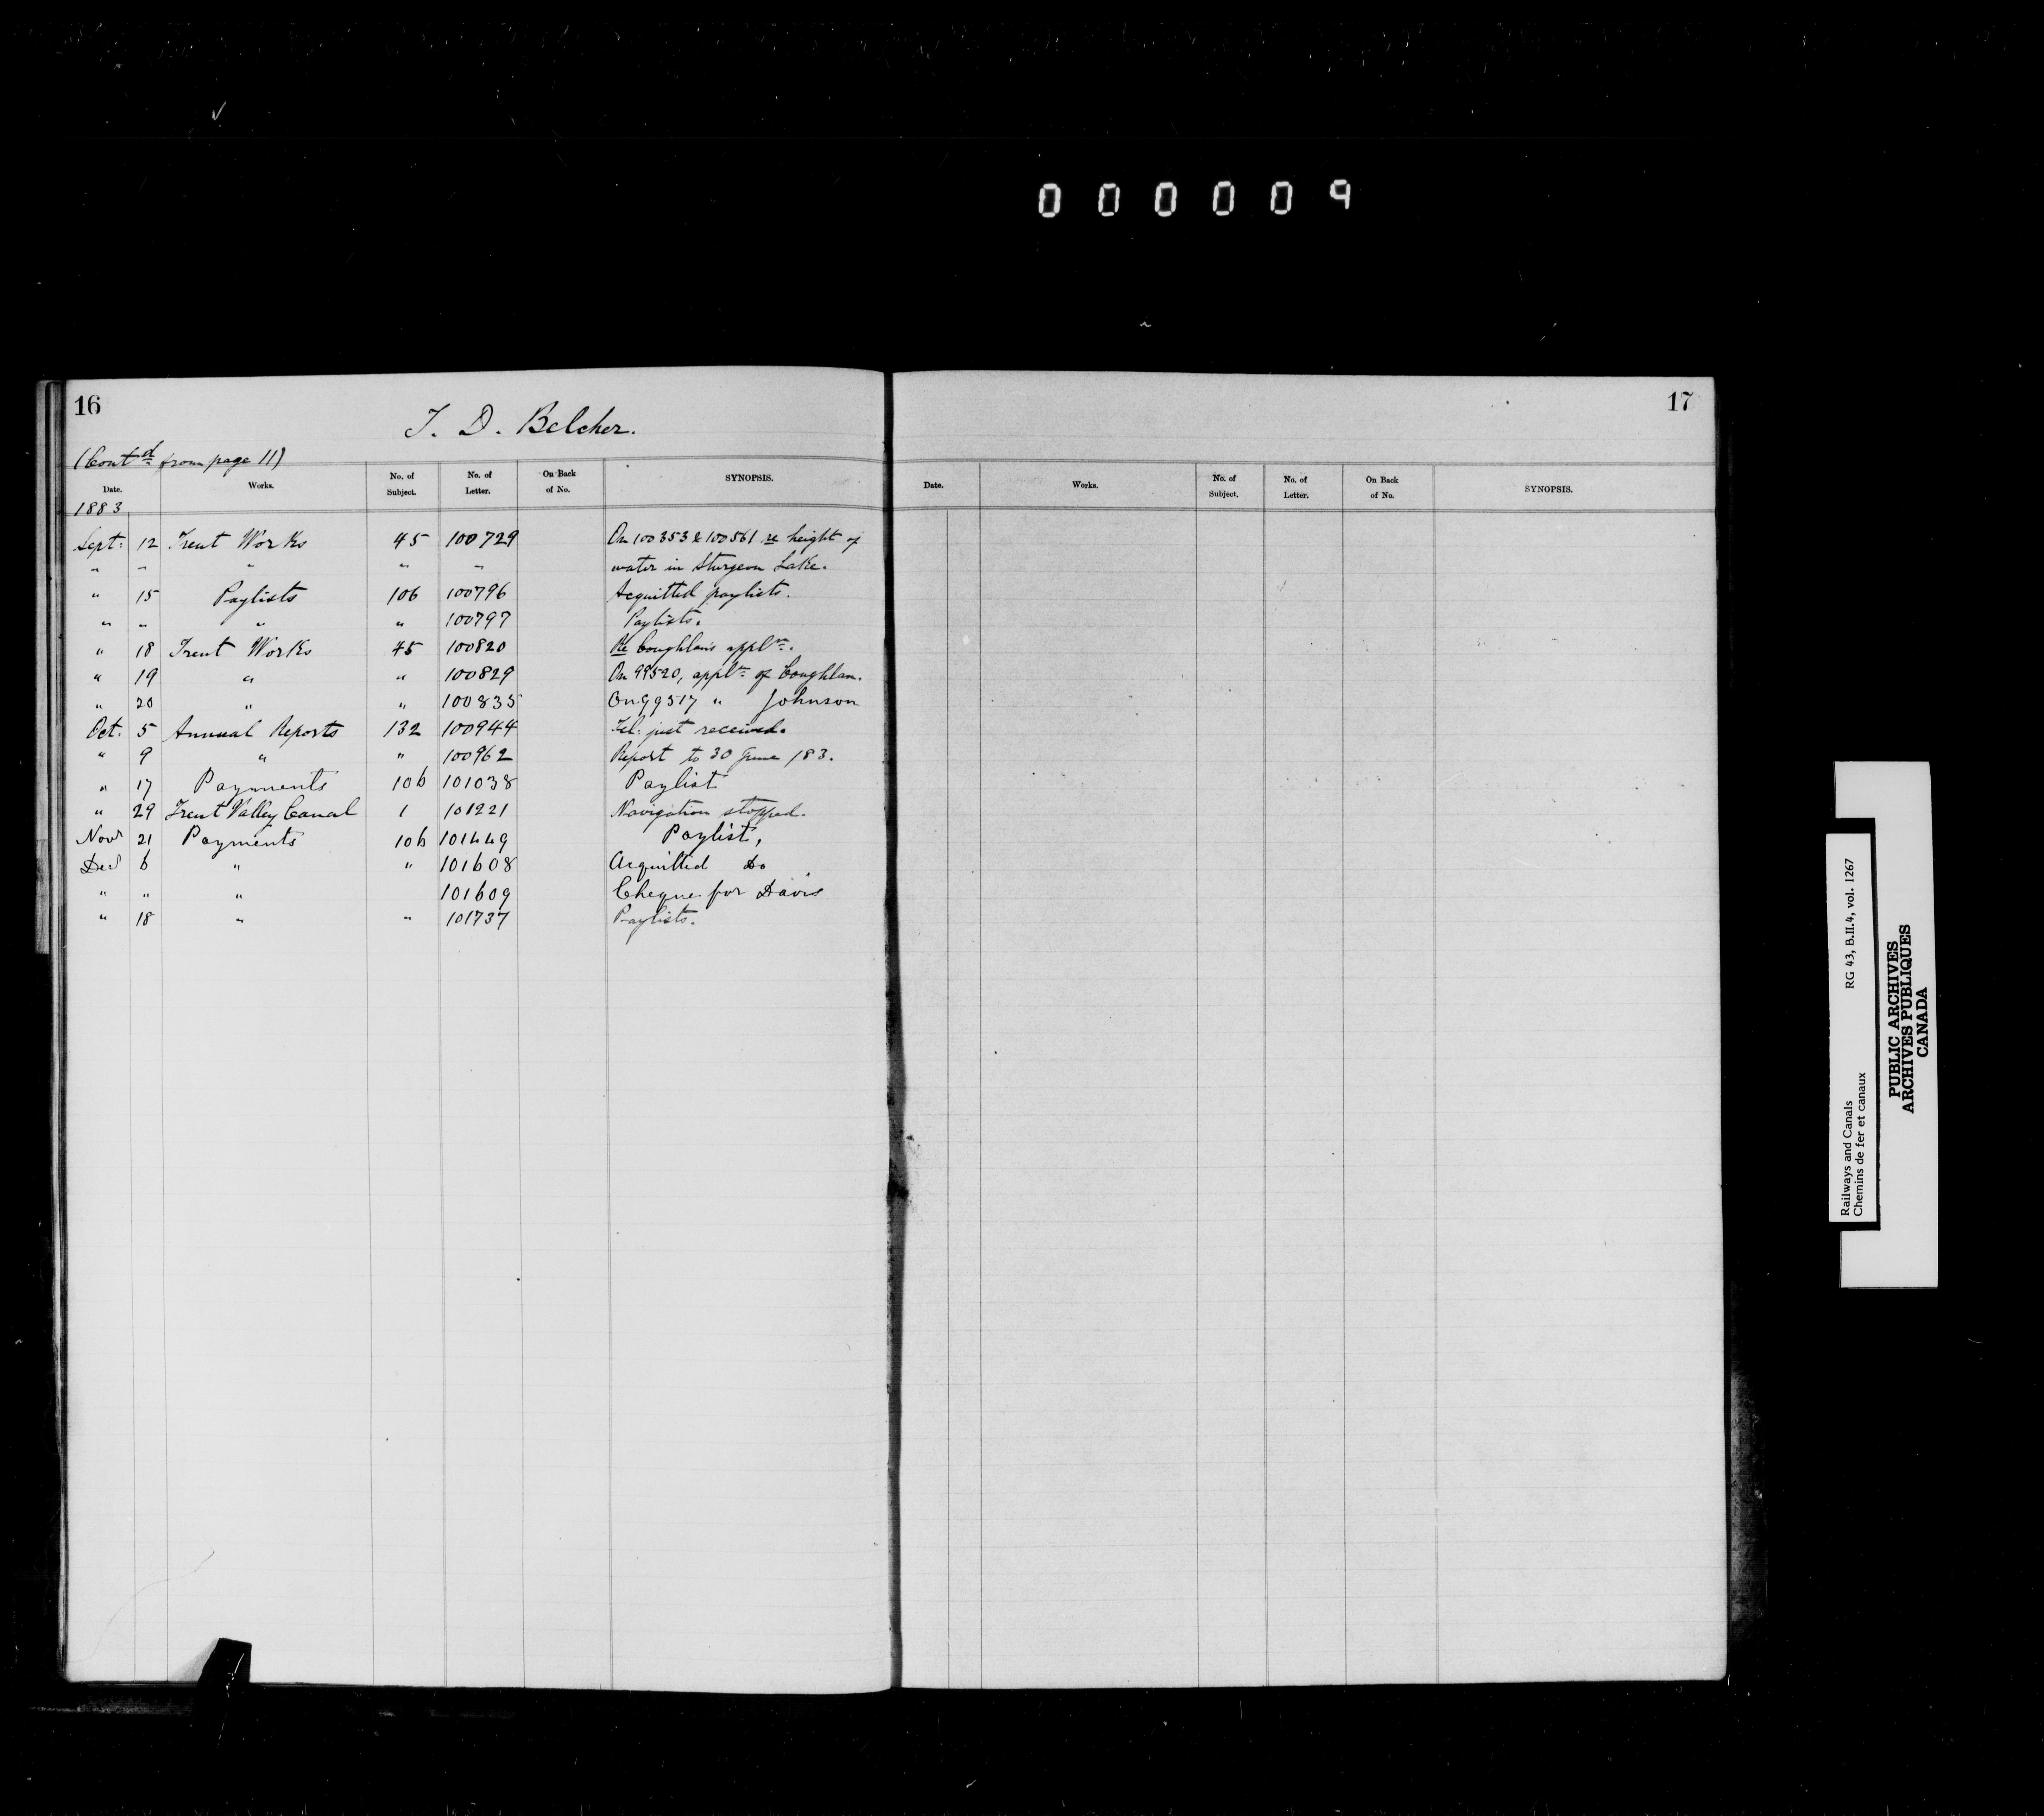 000009
16
T. D. Belcher.
(Contd from page 11)
Date. Works. No. of Subject. No. of Letter. On Back of No. SYNOPSIS.
1883
Sept: 12 Trent Works 45 100729 On 100353 & 100561 re height of
" " " " " water in Sturgeon Lake.
" 15 Paylists 106 100796 Acquitted paylists.
" " " " 100797 Paylists.
" 18 Trent Works 45 100820 Re Coughlan's appln.
" 19 " " 100829 On 99520, appln of Coughlan.
" 20 " " 100835 On 99517 " Johnson
Oct. 5 Annual Reports 132 100944 Tel. just received.
" 9 " " 100962 Report to 30 June /83.
" 17 Payments 106 101038 Paylist
" 29 Trent Valley Canal 1 101221 Navigation stopped.
Novr 21 Payments 106 101449 Paylist,
Decr 6 " " 101608 Acquitted Do
" " " 101609 Cheque for Davis
" 18 " " 101737 Paylists.
17
Date. Works. No. of Subject. No. of Letter. On Back of No. SYNOPSIS.
Railways and Canals RG 43, B.II.4, vol. 1267
Chemins de fer et canaux
PUBLIC ARCHIVES
ARCHIVES PUBLIQUES
CANADA